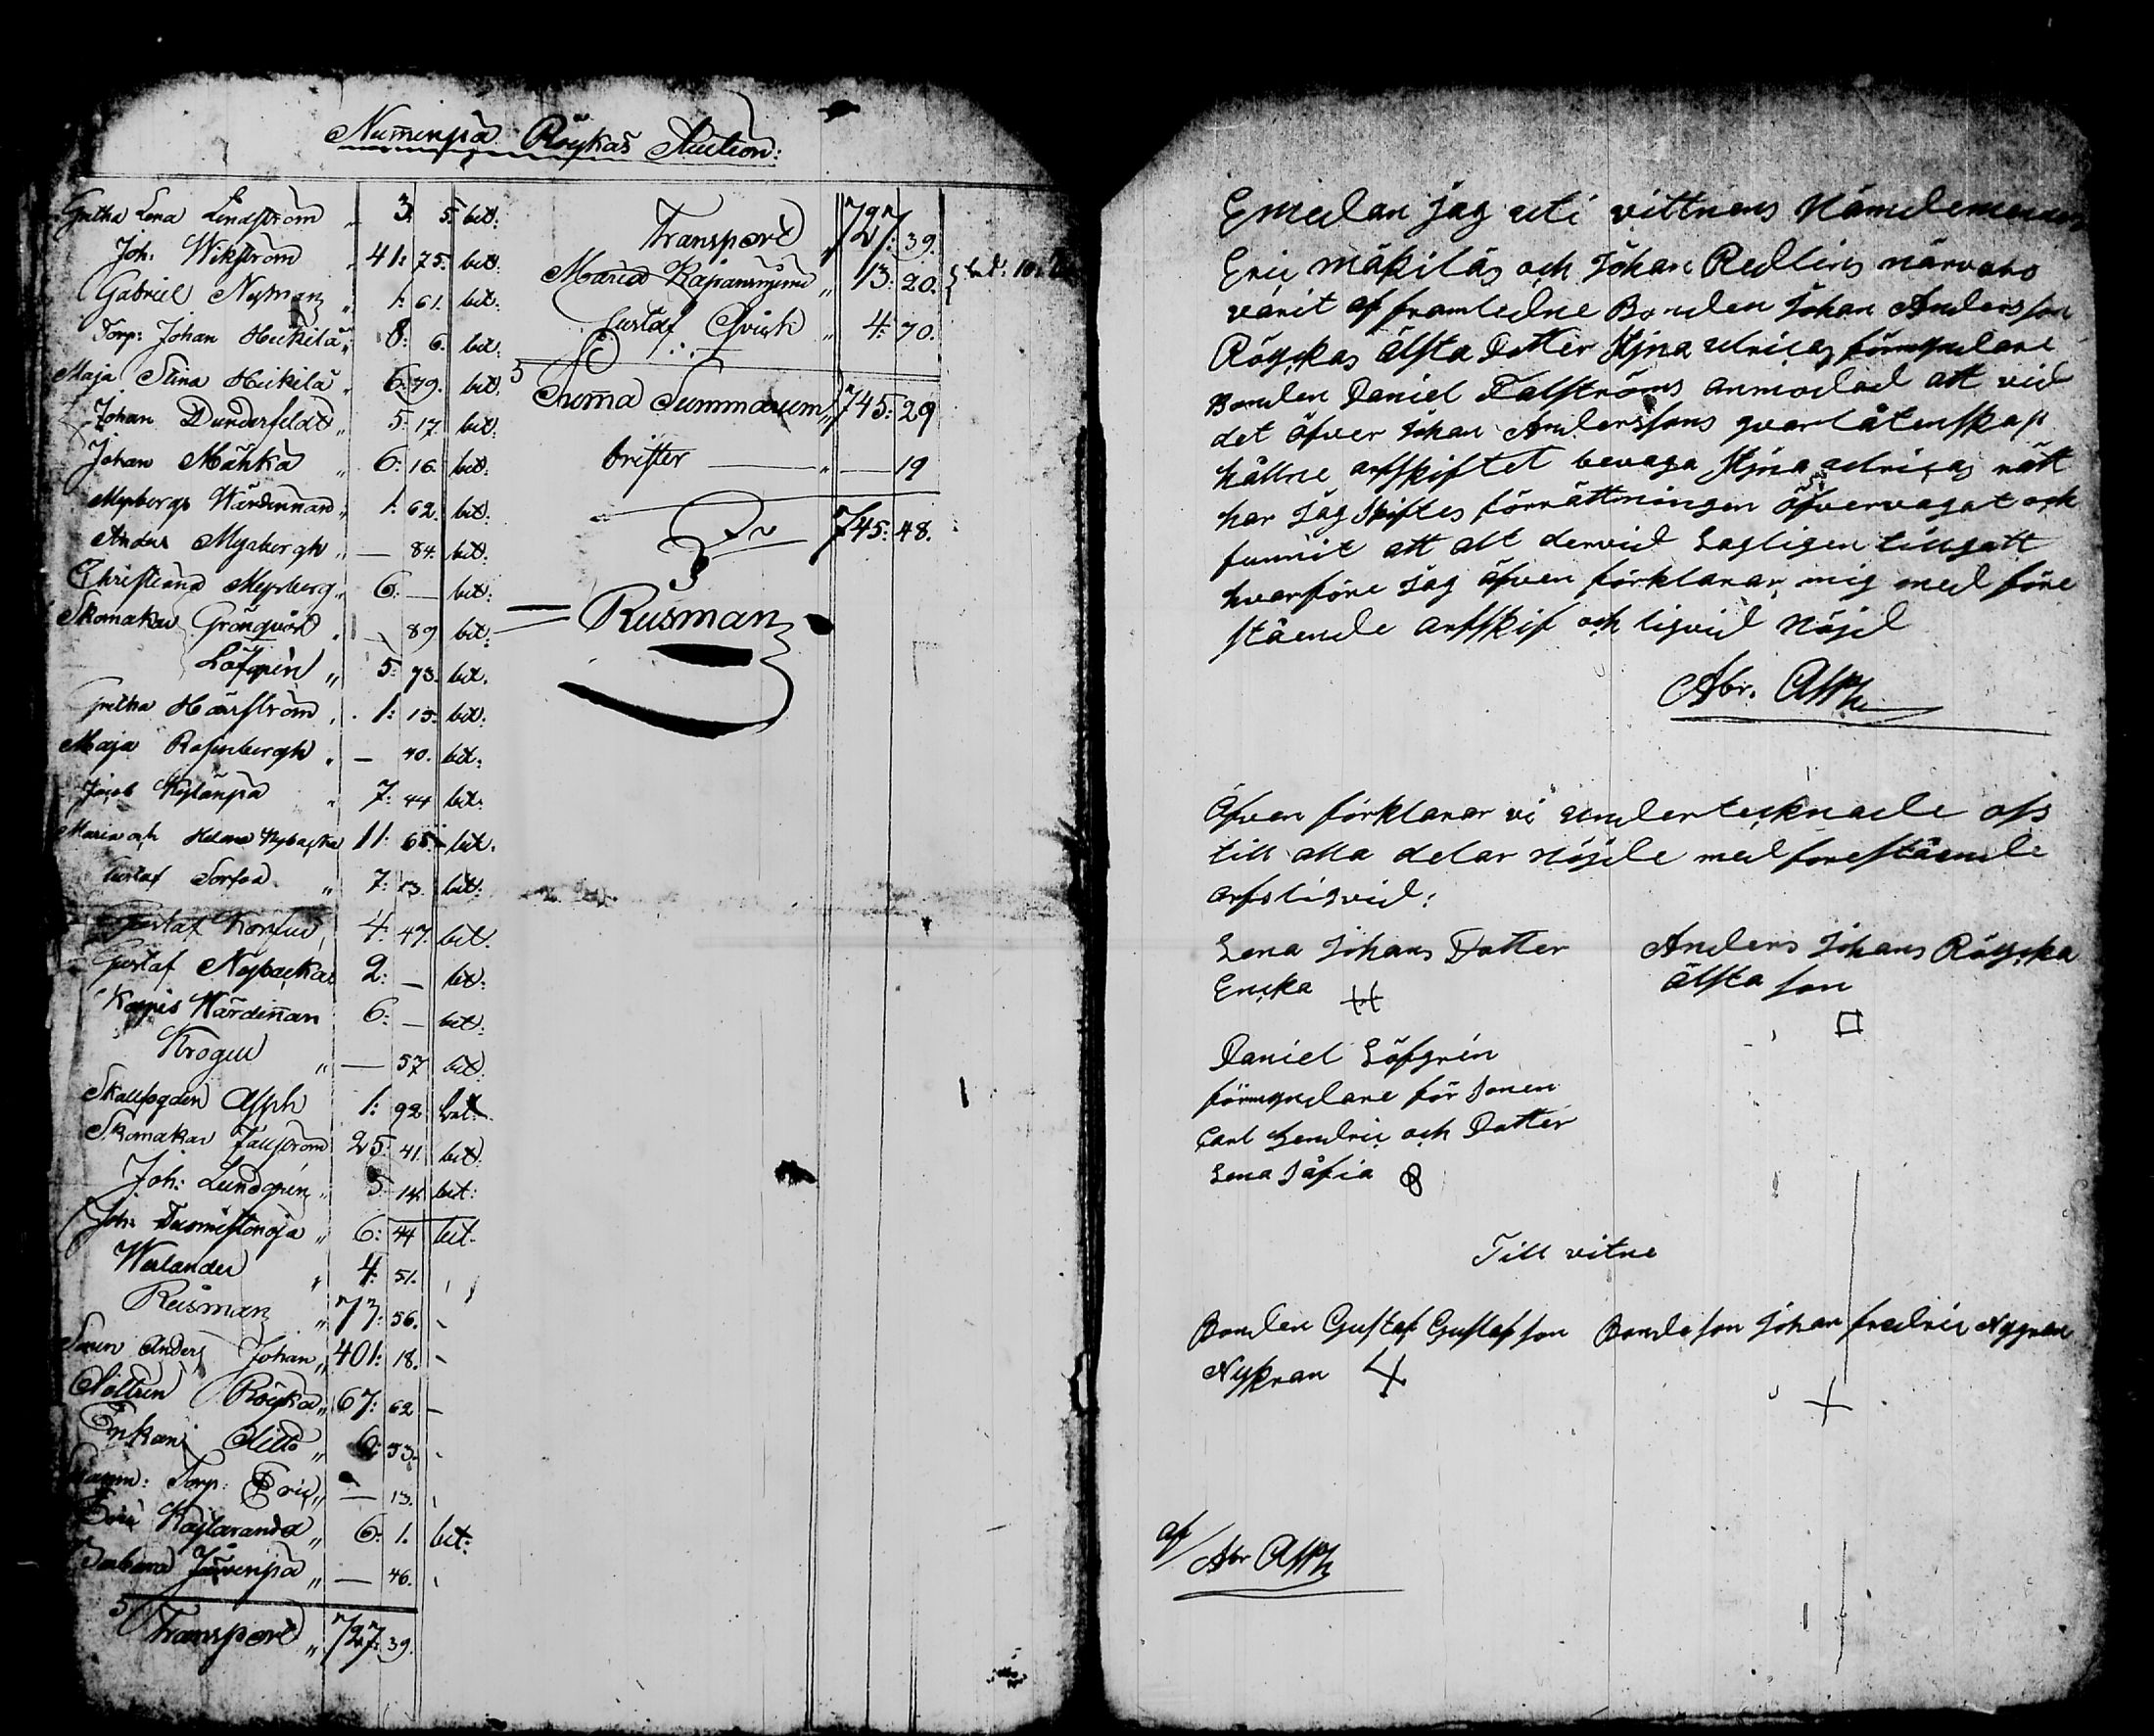 Numenpä Röykäs Auction:
Gretha Lena Lindström 3. 5. bet:
Joh: Wikström 41: 75. bet.
Gabriel Nyman 1: 61. bet.
Torp: Johan Heikilä 8: 6. bet.
Maja Stina Heikilä 6: 79. bet.
Johan Dunderfeldt 5: 17. bet.
Johan Mähkä 6: 16. bet.
Myrbergs Wärdinnan 1: 62. bet.
Anders Myrbergh — 84. bet.
Christiana Myrberg 6: — bet:
Skomakar Grönqvist — 89 bet.
Löfgrén 5: 73. bet.
Gretha Hägström 1: 13: bet.
Maja Rosenbergh — 40. bet.
Jacob Kylänpä 7: 44 bet:
Maria och Helena Nybacka 11: 65. bet.
Gustaf Sorfsa 7: 13. bet:
Gustaf Korfsu 4: 47. bet.
Gustaf Nybackas 2: — bet:
Wärdinnan 6: — bet:
Krögell — 57 bet.
Skallfogden Alfph 1: 92 bet.
Skomakar Fallström 25: 41. bet.
Joh: Lundgrén 5: 14. bet:
Joh: 6: 44 bet.
Werlander 4: 51.
Rusman 73: 56.
Sonen Anders Johan 401: 18.
Röyka 67: 62 —
Enkan Ditto 6: 53.
Torp: Eric — 13.
Eric 6: 1. bet:
Järvenpä — 46.
Transport 727: 39.
Transport 727: 39.
Maria 13: 20. bet: 10
Gustaf Qvist 4: 70.
Summa Summarum 745: 29
brister — — 19
745: 48.
Rusman
Emedan jag uti vittnens Nämdemannen
Eric Mäkiläs och Johan Redlins närvaro
varit af framledne Bonden Johan Andersson
Röyckas älsta Dotter Hjna ulricas förmyndare
Bonden Daniel Falströms anmodad att vid
det öfver Johan Anderssons qvarlåtenskap
hållne arfskiftet bevaga Hjna ulricas rätt
har Jag Skiftes förrättningen öfvervagat och
funnit att alt dervid Lagligen tillgatt
hvarföre Jag äfven förklarar mig med före
stående arfskif och liqvid Nöjd
Abr. Alfph
Äfven förklarar vi undertecknade oss
till alla delar Nöjde med forestående
arfsliqvid:
Lena Johans Dotter Anders Johans Röycka
Encka älsta son
Daniel Löfgrén
förmyndare för Sonen
Carl Hendric och Dotter
Lena Såfia
Till vitne
Bonden Gustaf Gustafson Bondeson Johan fredric Nygran
Nykran
af/ Abr Alfph